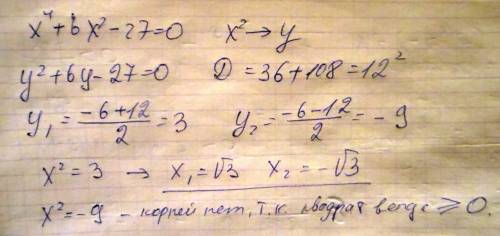 x⁴+6x²-27=0 x²→y
y²+6y-27=0 D=36+108=12²
y₁=(-6+12)/2=3 y₂=(-6-12)/2=-9
x²=3 → x₁=√3 x₂=-√3
x²=-9 - корней нет, т.к. квадрат всегда ≥0.